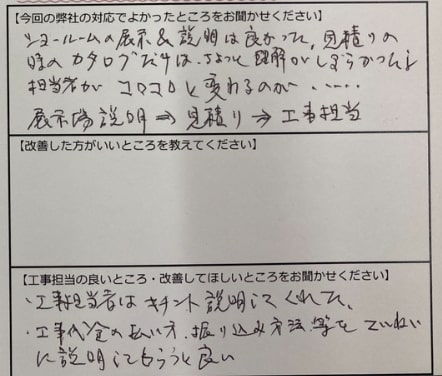 【今回の弊社の対応でよかったところをお聞かせください】
ショールームの展示&説明は良かった、見積りの
時のカタログだけは、ちょっと理解がしづらかったと
担当者がコロコロと変わるのが・・・・・・
展示場説明⇒見積り⇒工事担当
【改善した方がいいところを教えてください】
【工事担当の良いところ・改善してほしいところをお聞かせください】
・工事担当者はキチント説明してくれた、
・工事代金の払い方、振り込み方法等をていねい
に説明してもらうと良い